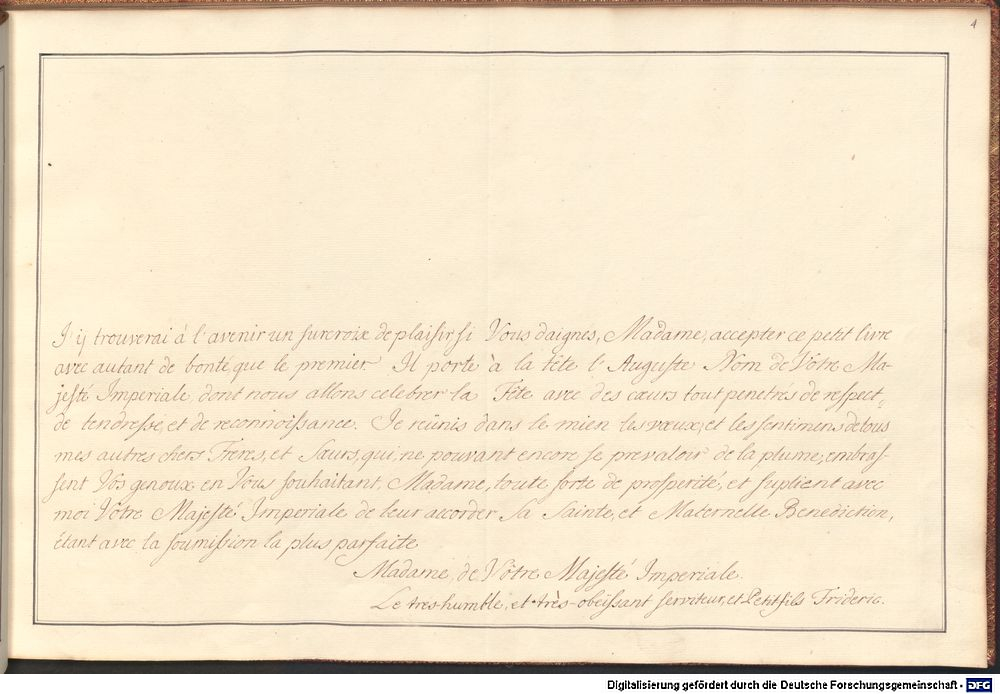 4
J'ij trouverai à l'avenir un surcroix de plaisir, si Vous daignes, Madame, accepter ce petit livre
avec autant de bonté, que le premier. Il porte à la tête l'Auguste Nom de Vôtre Ma-
jesté Imperiale, dont nous allons celebrer la Fête avec des cœurs tout penetrés de respect,
de tendresse, et de reconnoissance. Je reünis dans le mien les vœux, et les sentimens de tous
mes autres chers Freres, et Sœurs, qui, ne pouvant encore se prevaloir de la plume, embras-
sent Vos genoux en Vous souhaitant, Madame, toute sorte de prosperité, et suplient avec
moi Vôtre Majesté Imperiale de leur accorder sa Sainte, et Maternelle Benediction,
étant avec la soumission la plus parfaite
Madame, de Vôtre Majesté Imperiale.
Le très-humble, et très-obëissant serviteur, et Petit fils Frideric.
Digitalisierung gefördert durch die Deutsche Forschungsgemeinschaft - DFG